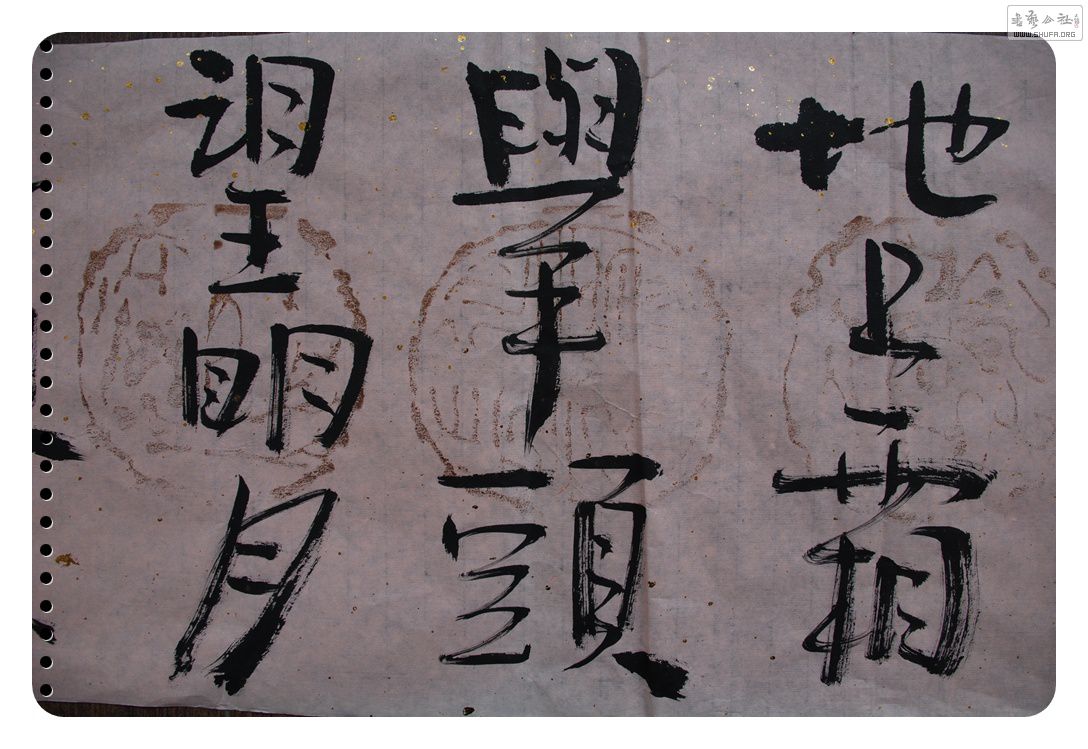 地上霜
舉頭
望明月
書藝公社
WWW.SHUFA.ORG